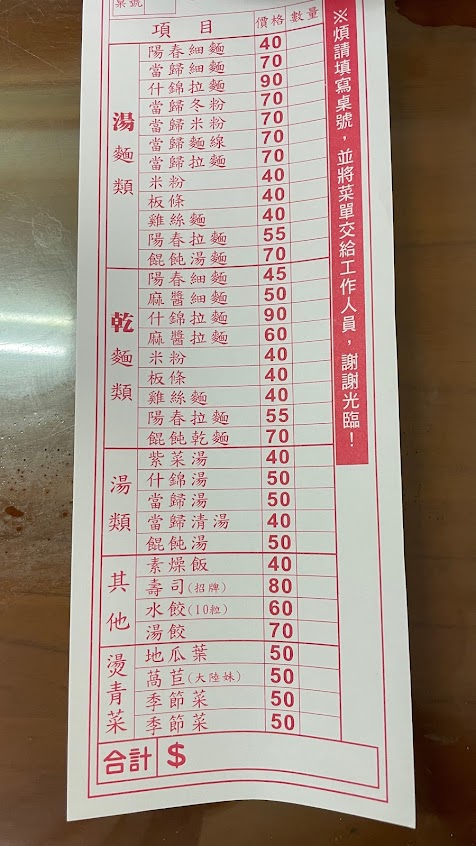 桌號
項目 價格 數量
湯麵類
陽春細麵 40
當歸細麵 70
什錦拉麵 90
當歸冬粉 70
當歸米粉 70
當歸麵線 70
當歸拉麵 70
米粉 40
板條 40
雞絲麵 40
陽春拉麵 55
餛飩湯麵 70
乾麵類
陽春細麵 45
麻醬細麵 50
什錦拉麵 90
麻醬拉麵 60
米粉 40
板條 40
雞絲麵 40
陽春拉麵 55
餛飩乾麵 70
湯類
紫菜湯 40
什錦湯 50
當歸湯 50
當歸清湯 40
餛飩湯 50
其他
素燥飯 40
壽司(招牌) 80
水餃(10粒) 60
湯餃 70
燙青菜
地瓜葉 50
萵苣(大陸妹) 50
季節菜 50
季節菜 50
合計 $
※煩請填寫桌號，並將菜單交給工作人員，謝謝光臨！